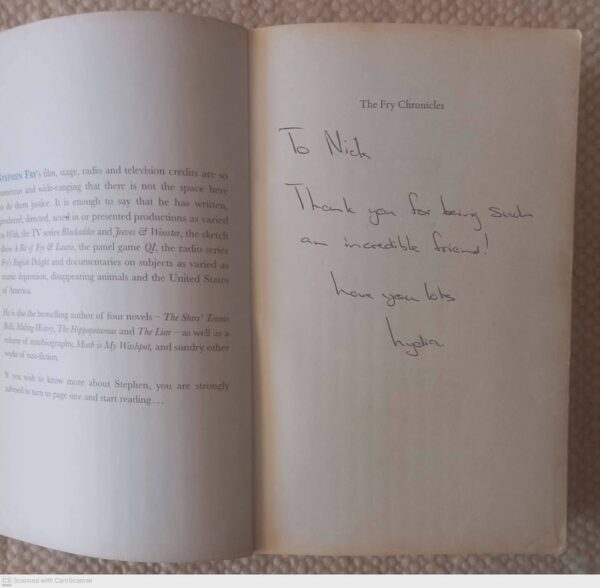 STEPHEN FRY's film, stage, radio and television credits are so
numerous and wide-ranging that there is not the space here
to do them justice. It is enough to say that he has written,
produced, directed, acted in or presented productions as varied
as Wilde, the TV series Blackadder and Jeeves & Wooster, the sketch
show A Bit of Fry & Laurie, the panel game QI, the radio series
Fry's English Delight and documentaries on subjects as varied as
manic depression, disappearing animals and the United States
of America.
He is also the bestselling author of four novels – The Stars' Tennis
Balls, Making History, The Hippopotamus and The Liar – as well as a
volume of autobiography, Moab is My Washpot, and sundry other
works of non-fiction.
If you wish to know more about Stephen, you are strongly
advised to turn to page one and start reading . . .
The Fry Chronicles
To Nick
Thank you for being such
an incredible friend!
Love you lots
Lydia.
CS Scanned with CamScanner